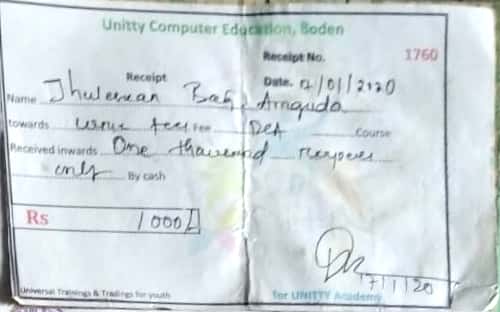 Unitty Computer Education, Boden
Receipt No. 1760
Receipt Date. /01/2020
Name Bag,
towards fees Fee DCA Course
Received inwards One thausend
only By cash
Rs 1000/-
17/1/20
Universal Trainings & Tradings for youth for UNITTY Academy